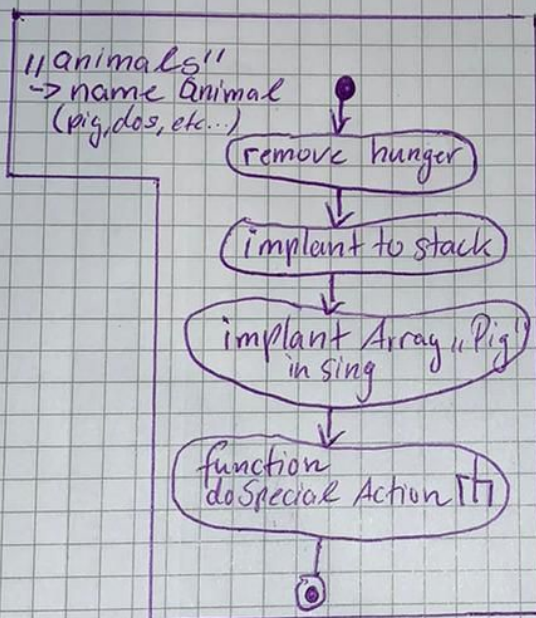 „animals"
-> name animal
(pig, dos, etc...)
remove hunger
implant to stack
implant Array „Pig"
in sing
function
doSpecial Action